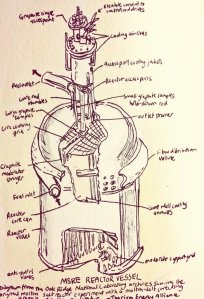 Graphite sample
access port
Flexible conduit to
control rod drives
Cooling air lines
Access port cooling jackets
Fuel outlet
Reactor access port
Core rod thimbles
Small graphite samples
hold-down rod
Large graphite
samples
outlet strainer
Core centering
grid
Graphite
moderator
stringer
Flow distribution
volute
Fuel inlet
Core wall cooling
annulus
Reactor
core can
Reactor
vessel
anti-swirl
vanes
moderator support grid
MSRE REACTOR VESSEL
Diagram from the Oak Ridge National Laboratory archives showing the
original molten salt reactor experiment